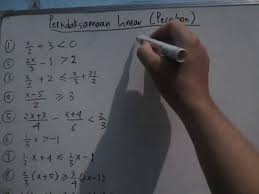 Pertidaksamaan Linear (Pecahan)
① x/2 - 3 < 0
② 2x/3 - 1 > 2
③ x/2 + 2 ≤ x/3 + 21/2
④ x-5/2 ≥ 3
⑤ 2x+3/4 - x+4/6 < 2/3
⑥ 1/3 x > -1
⑦ 1/2 x + 4 ≤ 1/3 x - 1
⑧ 2/3 (x+5) ≥ 3/4 (2x-1)